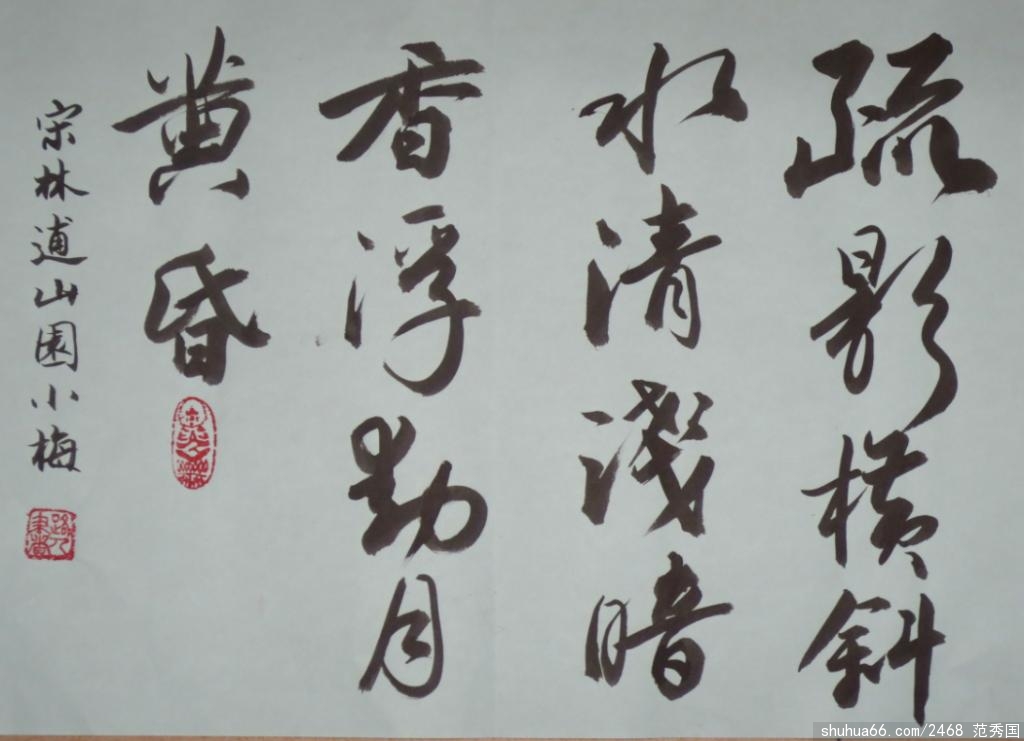 疏影横斜
水清淺暗
香浮動月
黄昏
宋林逋山園小梅
shuhua66.com/2468 范秀国